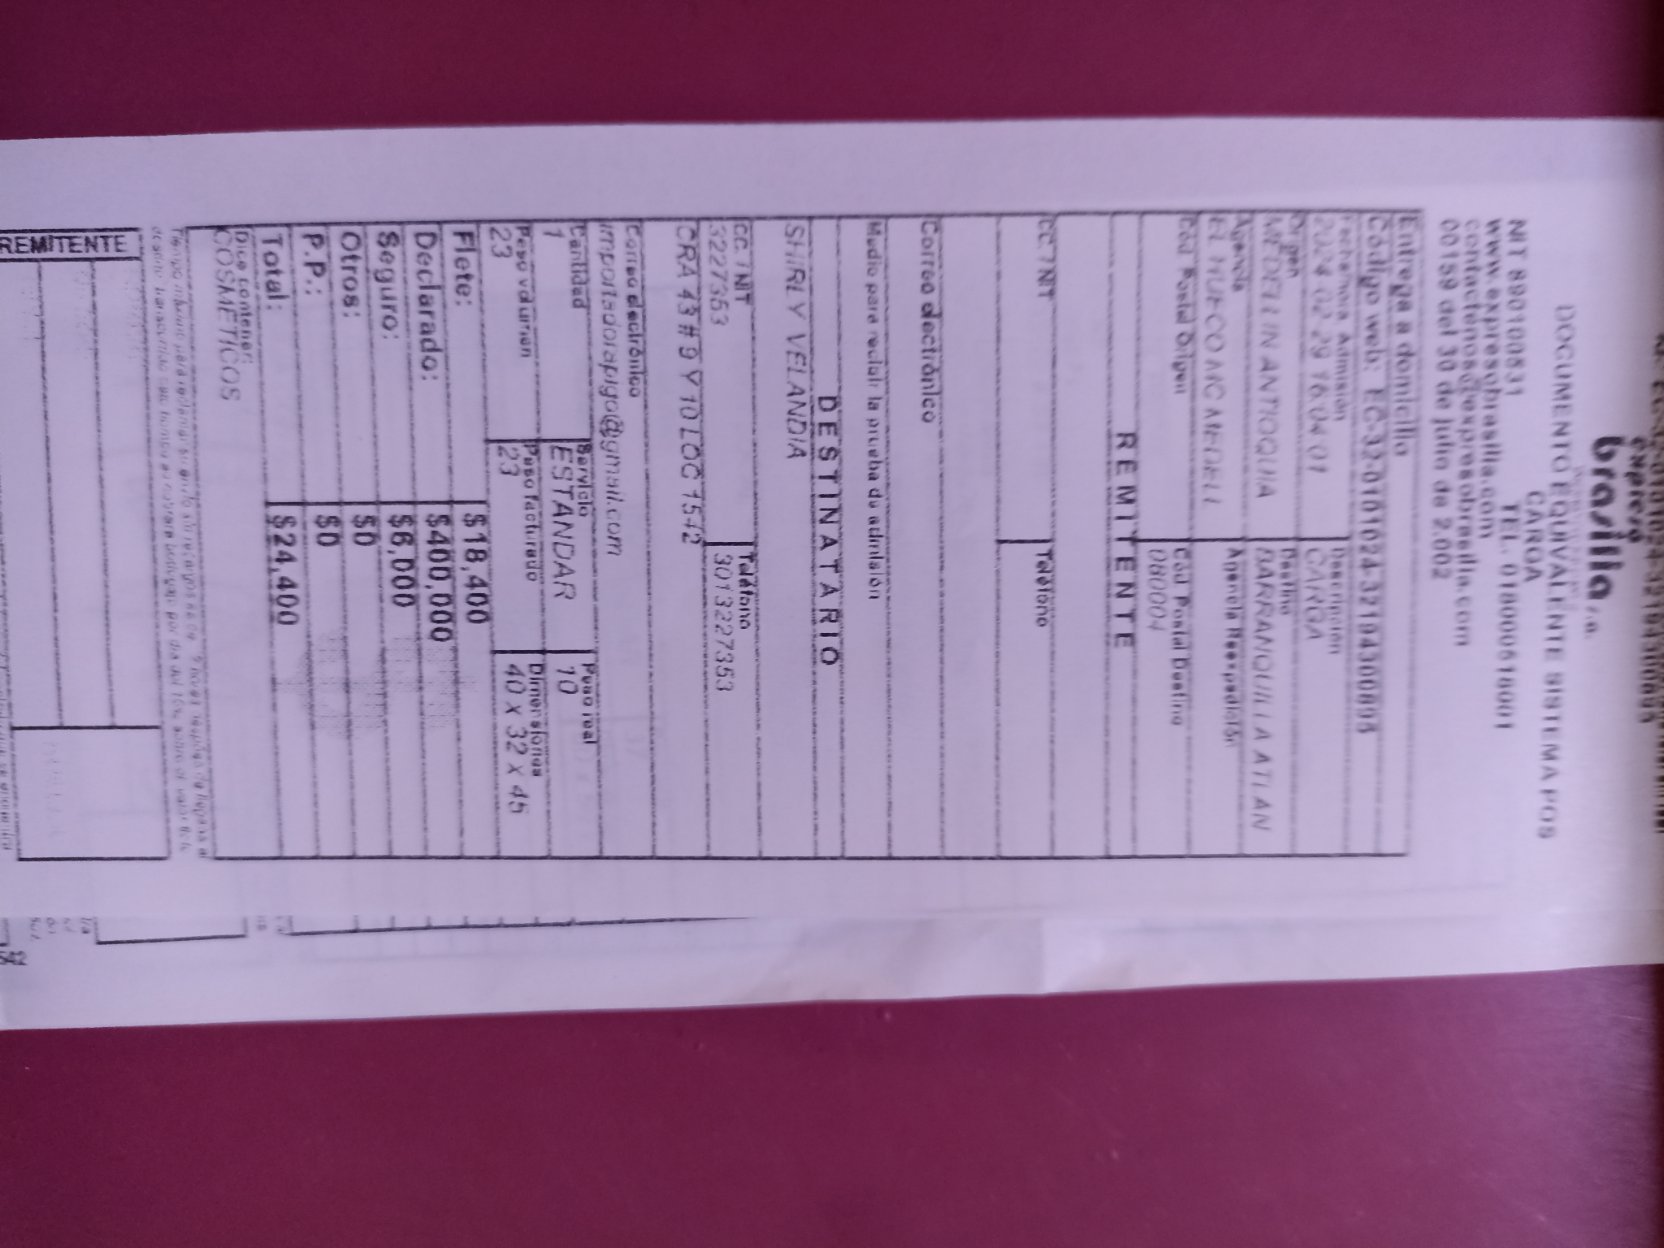 expreso
brasilia s.a.
DOCUMENTO EQUIVALENTE SISTEMA POS
CARGA
NIT 890100531 TEL. 018000518001
www.expresobrasilia.com
contactenos@expresobrasilia.com
00159 del 30 de julio de 2.002
Entrega a domicilio
Código web:
Fecha/hora Admisión Descripción
2024 02 29 16:04:01 CARGA
Origen Destino
MEDELLIN ANTIOQUIA BARRANQUILLA ATLAN
Agencia Agencia Reexpedición
EL HUECO MC MEDELL
Cód Postal Origen Cód Postal Destino
080004
REMITENTE
CC / NIT Teléfono
Correo electrónico
Medio para reclair la prueba de admisión
DESTINATARIO
SHIRLY VELANDIA
CC / NIT Teléfono
3227353 3013227353
CRA 43 # 9 Y 10 LOC 1542
Correo electrónico
importadorapigo@gmail.com
Cantidad Servicio Peso real
1 ESTANDAR 10
Peso volumen Peso facturado Dimensiones
23 23 40 X 32 X 45
Flete: $18,400
Declarado: $400,000
Seguro: $6,000
Otros: $0
P.P.: $0
Total: $24,400
Dice contener:
COSMÉTICOS
REMITENTE
542